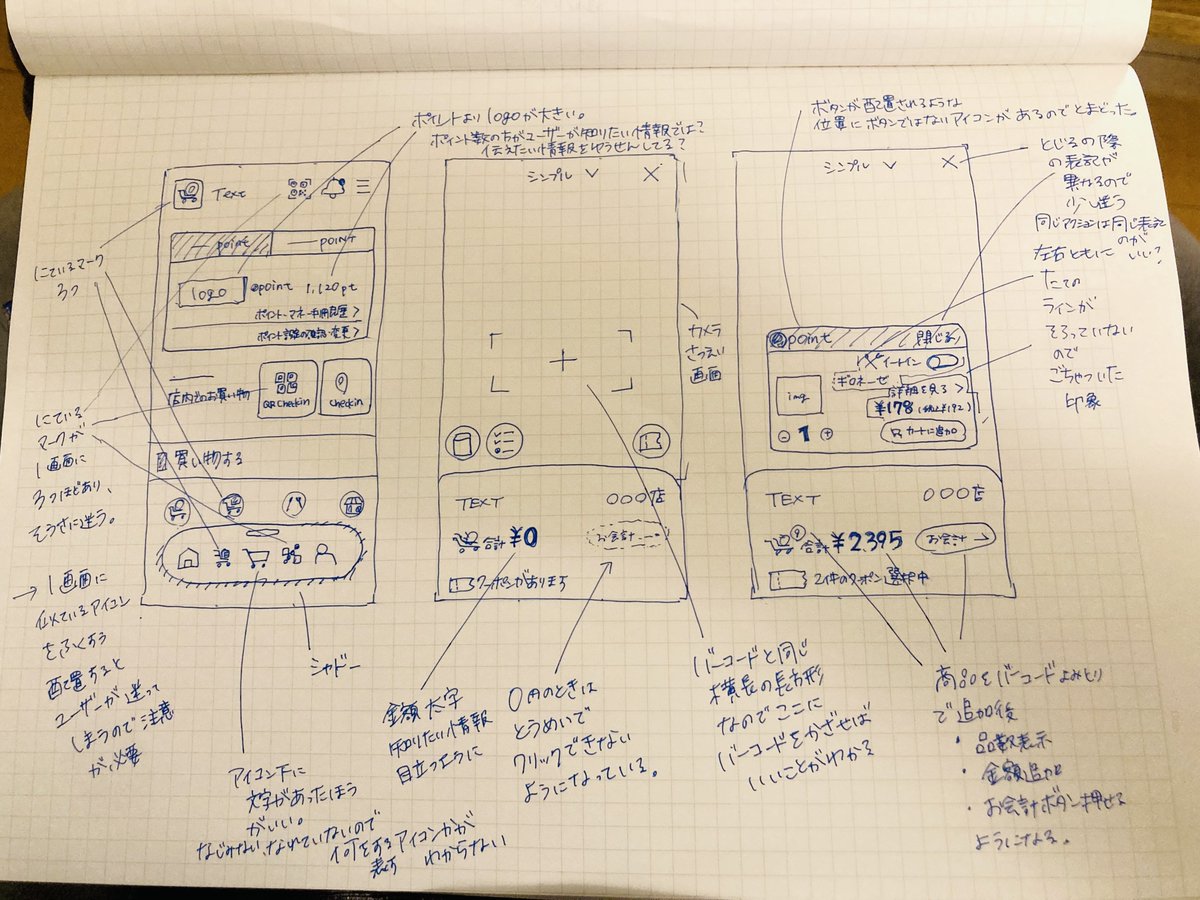 ポイントより logoが大きい。
ポイント数の方がユーザーが知りたい情報では?
伝えたい情報をゆうせんしてる?
ボタンが配置されるような
位置にボタンではないアイコンがあるのでとまどった。
とじるの際
の表記が
異なるので
少し迷う
同じアクションは同じ表記
のが
いい?
左右ともに
たての
ラインが
そろっていない
ので
ごちゃついた
印象
にているマーク
3つ
にている
マークが
1画面に
3つほどあり、
そうさに迷う。
→ 1画面に
似ているアイコン
をふくすう
配置すると
ユーザーが迷って
しまうので注意
が必要
Text
point
point
logo
point 1,120pt
ポイント・マネー利用履歴 >
店内でのお買い物
QR Checkin
Checkin
買い物する
シャドー
アイコン下に
文字があったほう
がいい。
なじみない、なれていないので
何をするアイコンかが
わからない
シンプル ∨ ×
カメラ
さつえい
画面
TEXT ○○○店
合計 ¥0 お会計 →
クーポンがあります
金額 太字
知りたい情報
目立つように
0円のときは
とうめいで
クリックできない
ようになっている。
バーコードと同じ
横長の長方形
なのでここに
バーコードをかざせば
いいことがわかる
シンプル ∨ ×
point 閉じる
イートイン
img
ギロネーゼ
詳細を見る >
¥178 (税込¥192)
- 1 +
カートに追加
TEXT ○○○店
合計 ¥2,395 お会計 →
2件のクーポン選択中
商品をバーコードよみとり
で追加後
・品数表示
・金額追加
・お会計ボタン押せる
ようになる。